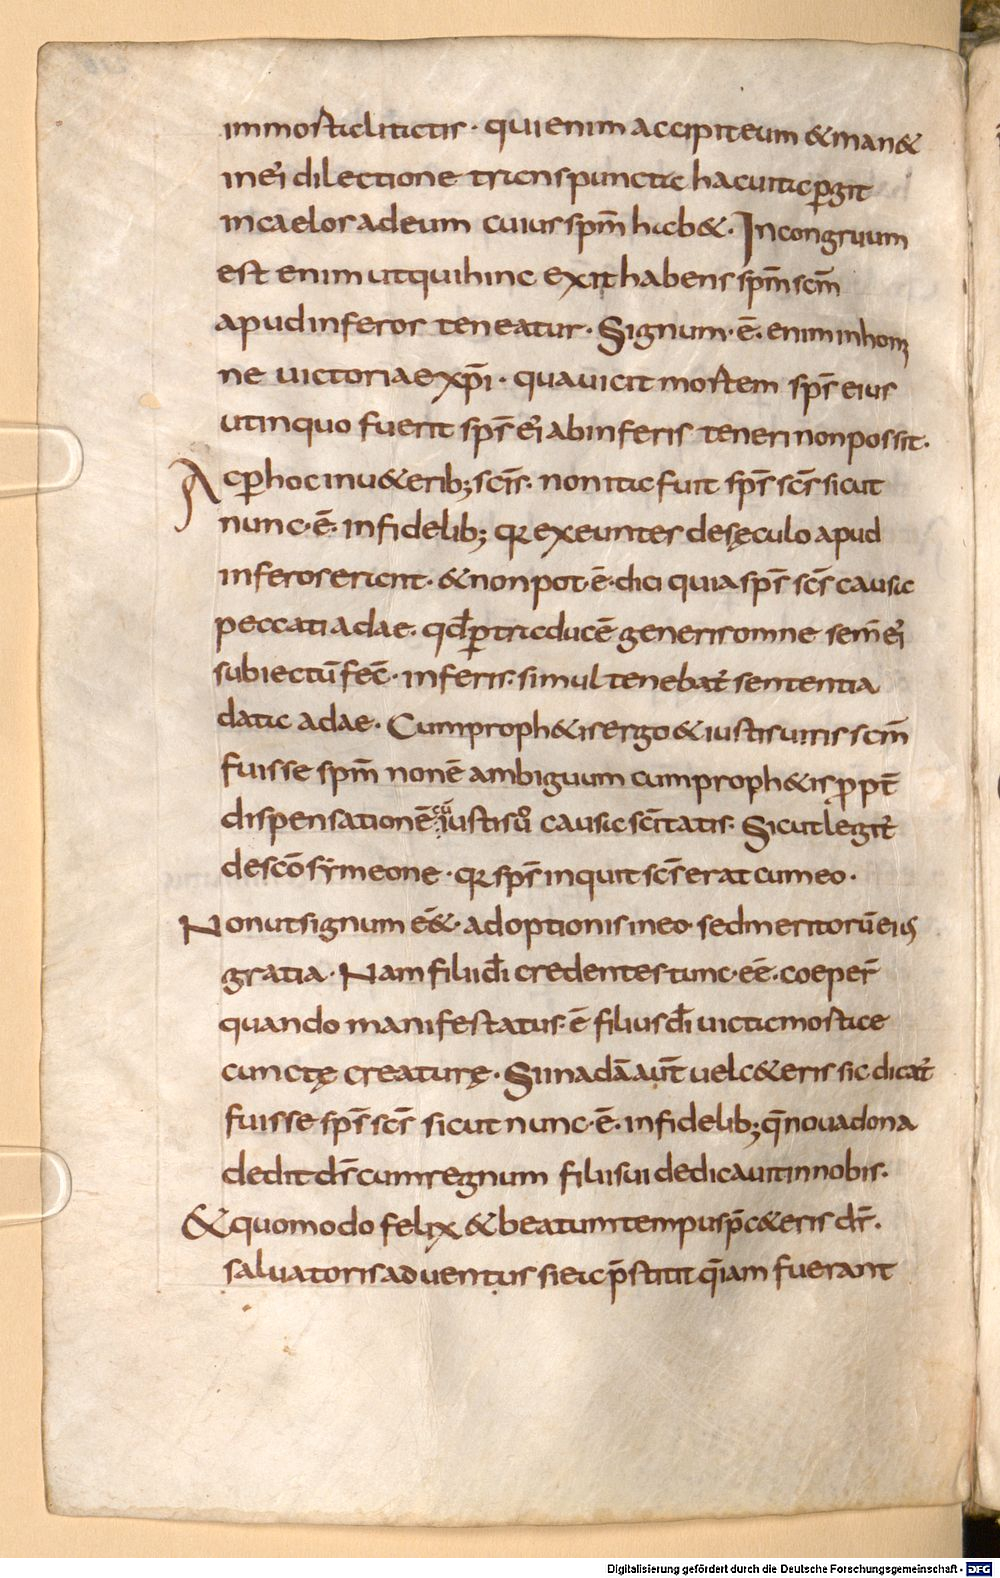 immortalitatis · qui enim accipit eum & man&
in ei᷒ dilectione transpuncta hac uita ꝑgit
in caelos ad eum cuius sp̄m hab& · Incongruum
est enim ut qui hinc exit habens sp̄m sc̄m
apud inferos teneatur · Signum · ē · enim in homi
ne uictoriae xp̄i · qua uicit mortem sp̄s eius
ut in quo fuerit sp̄s ei᷒ ab inferis teneri non possit ·
Ac ꝑ hoc in u&erib; sc̄is · non ita fuit sp̄s sc̄s sicut
nunc · ē · in fidelib; qr exeuntes de sęculo apud
inferos erant · & non pot · ē · dici quia sp̄s sc̄s causa
peccati adae · qđ ꝑ traducē generis omne sem̄ ei᷒
subiectū fec̄ · inferis · simul tenebat᷒ sententia
data adae · Cum proph&is ergo & iustis uiris sc̄m
fuisse sp̄m non ē ambiguum cum proph&is ꝓpt̄
dispensationē cū iustis uͦ causa sc̄itatis · Sicut legit᷒
de sc̄o symeone · qr sp̄s inquit sc̄s erat cum eo ·
Non ut signum e᷒& · adoptionis in eo · sed meritorū eius
gratia · Nam filii dī credentes tunc · eē · coeper̄
quando manifestatus · ē filius dī uicta morte
cunctę creaturę · Si in adā aut̄ uel c&eris sic dicat᷒
fuisse sp̄s sc̄s sicut nunc · ē · in fidelib; q̄ noua dona
dedit ds̄ cum regnum filii sui dedicauit in nobis ·
& quomodo felix & beatum tempus p̄ c&eris dr̄ ·
saluatoris aduentus si ea p̄stitit q̄ iam fuerant
Digitalisierung gefördert durch die Deutsche Forschungsgemeinschaft - DFG